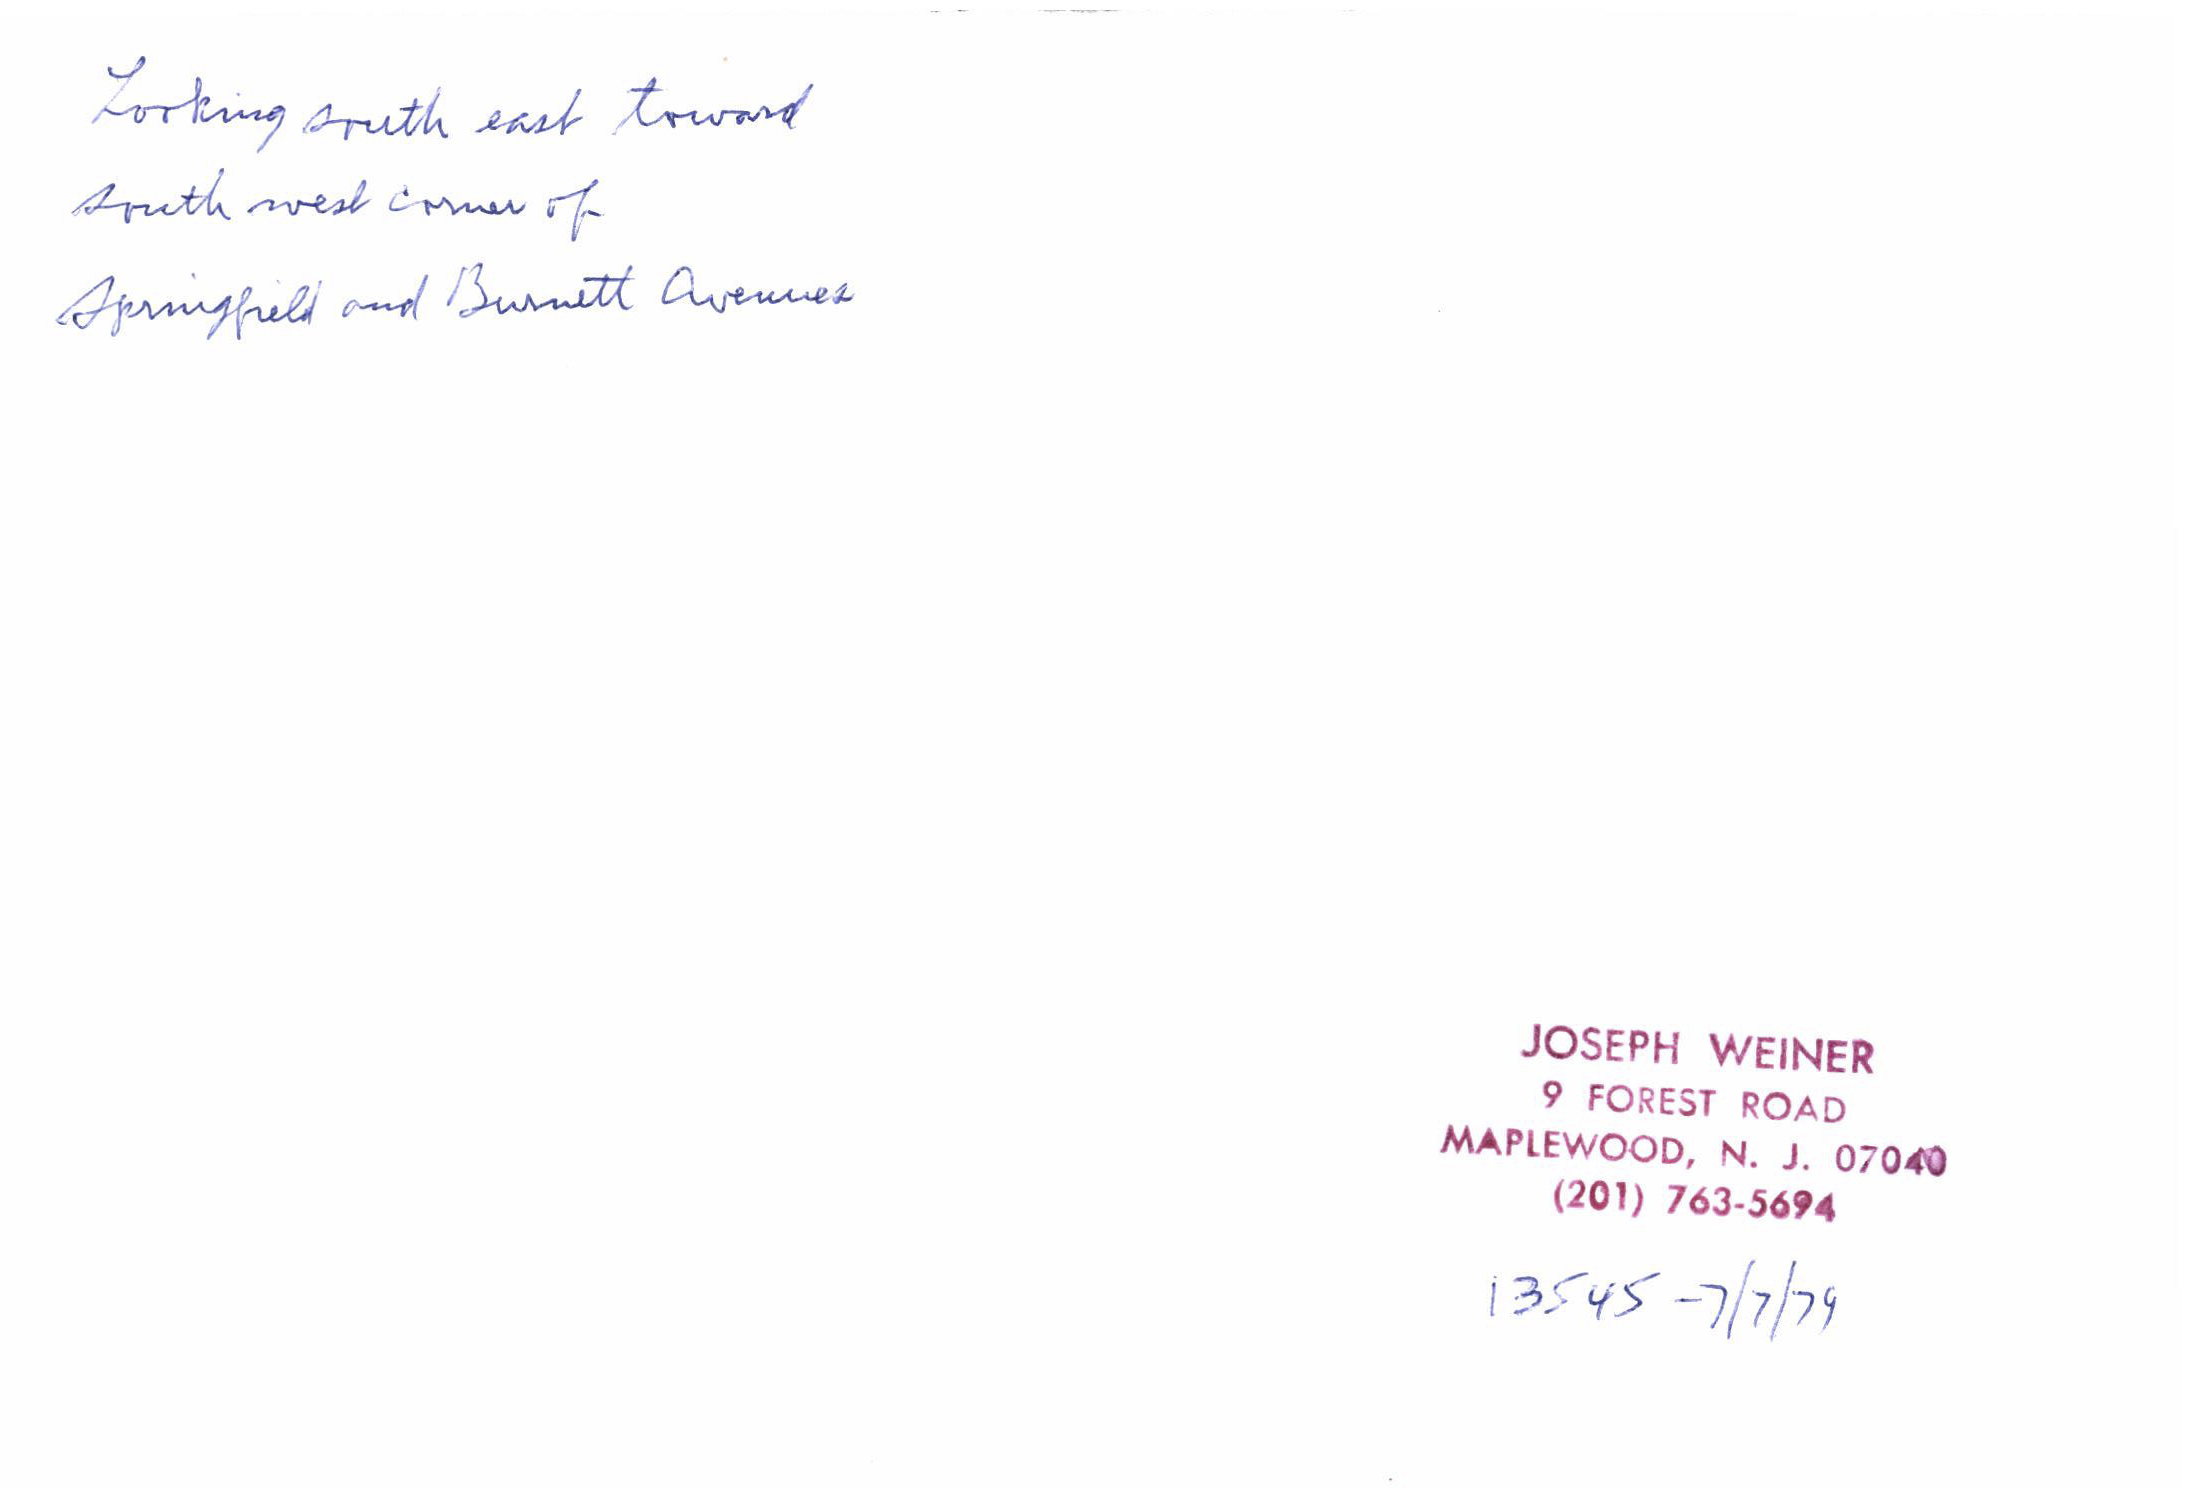 Looking south east toward
south west corner of
Springfield and Burnett Avenues
JOSEPH WEINER
9 FOREST ROAD
MAPLEWOOD, N. J. 07040
(201) 763-5694
13545 - 7/7/79